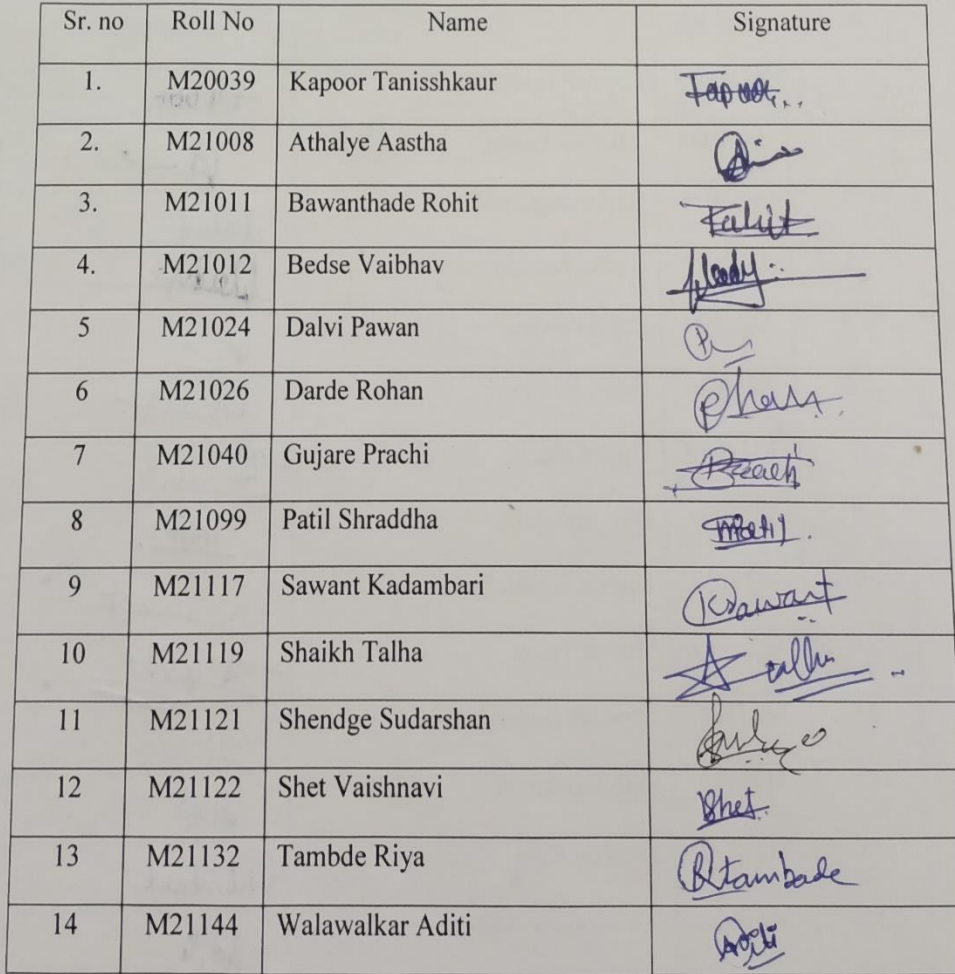 Sr. no Roll No Name Signature
1. M20039 Kapoor Tanisshkaur
2. M21008 Athalye Aastha
3. M21011 Bawanthade Rohit
4. M21012 Bedse Vaibhav
5 M21024 Dalvi Pawan
6 M21026 Darde Rohan
7 M21040 Gujare Prachi
8 M21099 Patil Shraddha
9 M21117 Sawant Kadambari KSawant
10 M21119 Shaikh Talha
11 M21121 Shendge Sudarshan
12 M21122 Shet Vaishnavi Shet
13 M21132 Tambde Riya Rtambade
14 M21144 Walawalkar Aditi Aditi